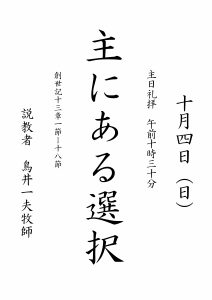 十月四日（日）
主日礼拝　午前十時三十分
主にある選択
創世記十三章一節－十八節
説教者　鳥井一夫牧師